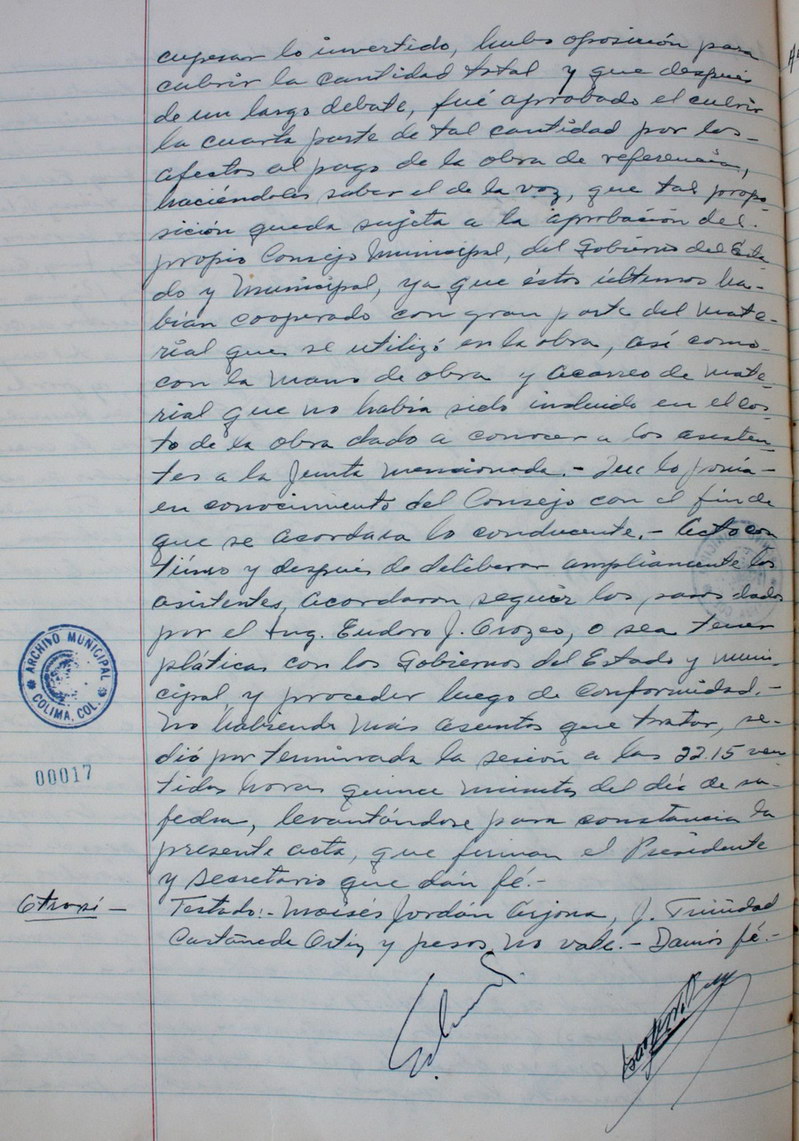 cuperar lo invertido, hubo oposición para
cubrir la cantidad total y que después
de un largo debate, fué aprobado el cubrir
la cuarta parte de tal cantidad por los-
afectos al pago de la obra de referencia,
haciéndoles saber el de la voz, que tal propo
sición queda sujeta a la aprobación del.
propio Consejo Municipal, del Gobierno del Esta
do y Municipal, ya que éstos últimos ha-
bían cooperado con gran parte del mate-
rial que se utilizó en la obra, así como-
con la mano de obra y acarreo de mate-
rial que no había sido incluido en el cos-
to de la obra dado a conocer a los asisten-
tes a la Junta mencionada.- Que lo ponía-
en conocimiento del Consejo con el fin de
que se acordara lo conducente.- Acto con
tinuo y después de deliberar ampliamente los
asistentes, acordaron seguir los pasos dados
por el Ing. Eudoro J. Orozco, o sea tener
pláticas con los Gobiernos del Estado y muni-
cipal y proceder luego de conformidad.-
No habiendo más asuntos que tratar, se-
dió por terminada la sesión a las 22.15 vein
tidos horas quince minutos del día de su-
fecha, levantándose para constancia la
presente acta, que firman el Presidente
y Secretario que dán fé.-
Otrosí-
Testado:- Moisés Jordán Arjona, J. Trinidad
Castañeda Ortiz y pesos, no vale.- Damos fé.-
ARCHIVO MUNICIPAL
COLIMA, COL.
00017